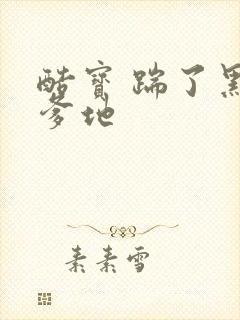 酷宝踹了黑
爹地
素素雪